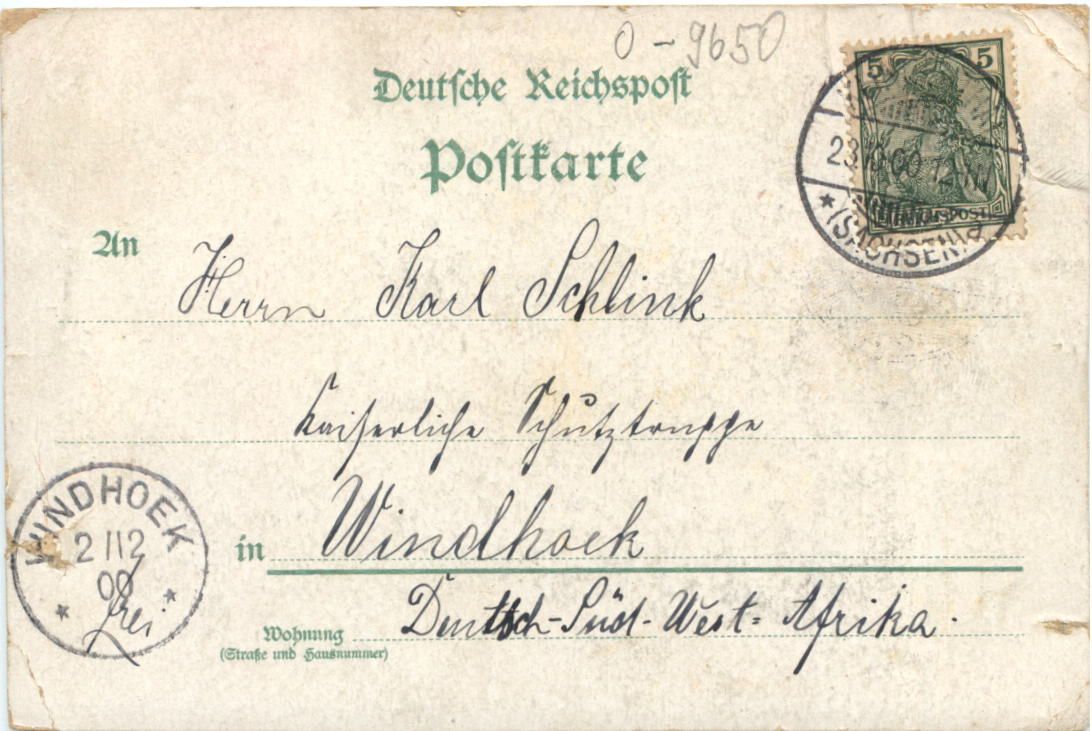 0-9650
Deutsche Reichspost
Postkarte
5 5
REICHSPOST
23. 00
* (SACHSEN)
An Herrn Karl Schlink
Kaiserliche Schutztruppe
in Windhoek
Deutsch-Süd-West-Afrika.
Wohnung
(Straße und Hausnummer)
WINDHOEK
2 12
00
* *
frei